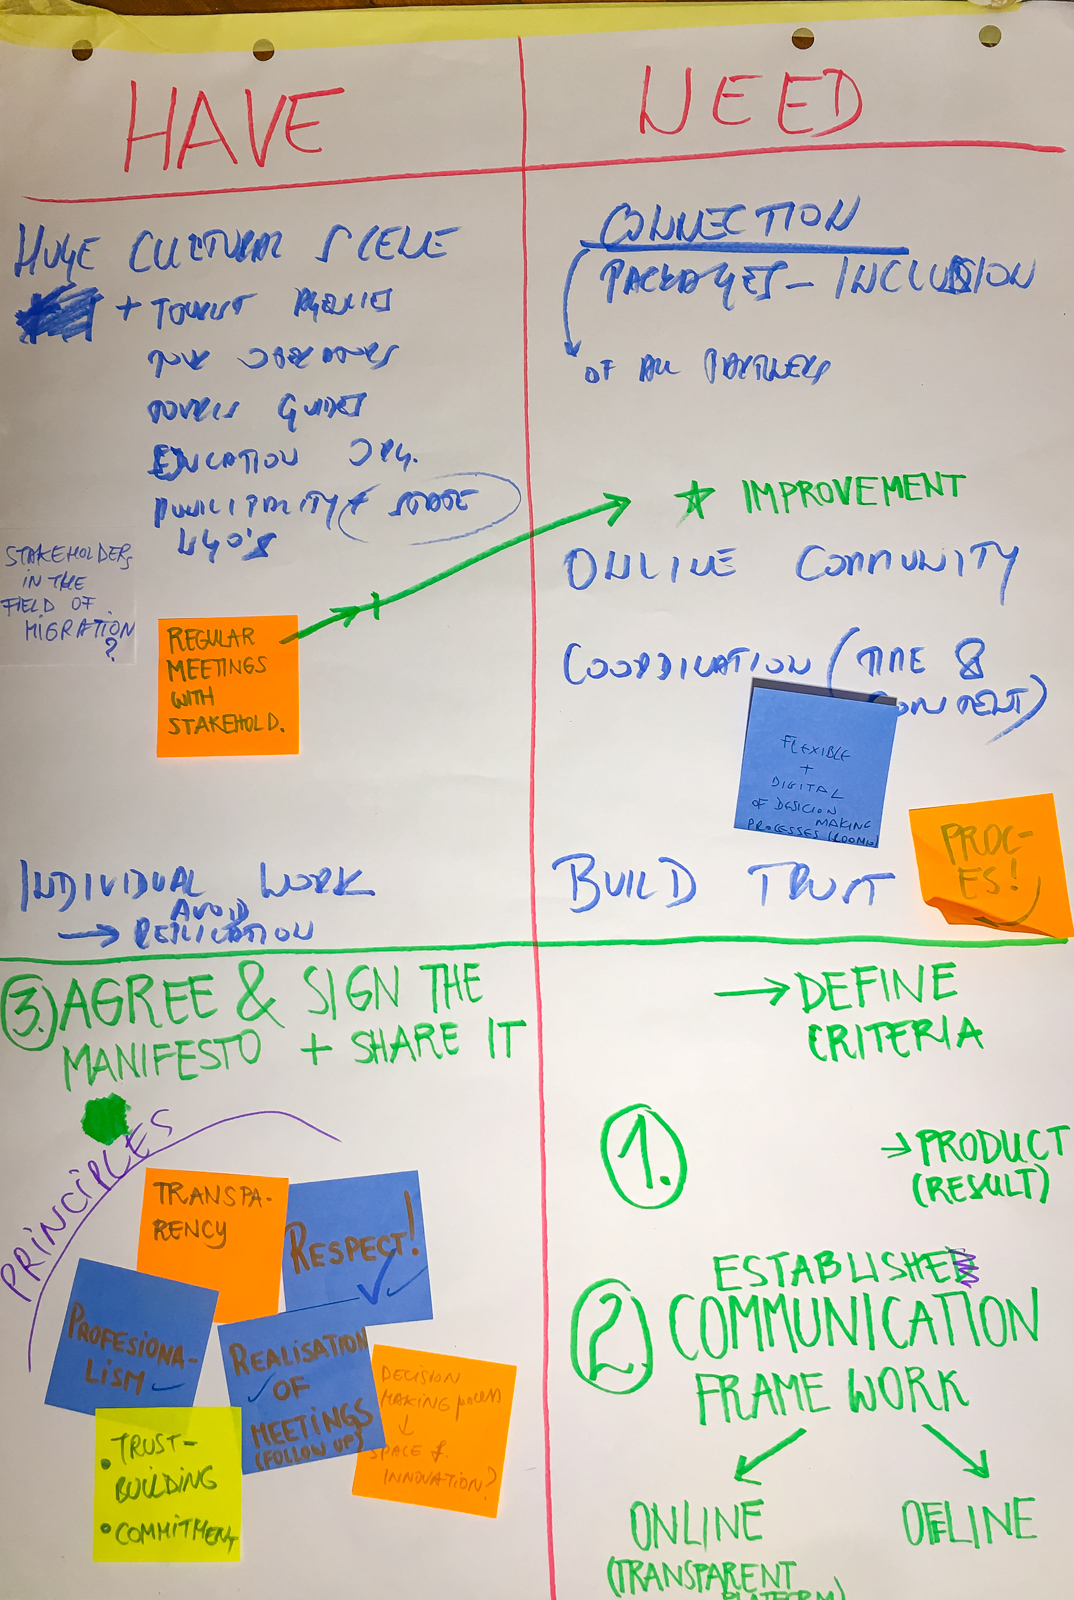 HAVE
HUGE CULTURAL SCENE
+ TOURIST AGENCIES
GUIDES
EDUCATION ORG.
MUNICIPALITY + STATE
NGO'S
STAKEHOLDERS
IN THE
FIELD OF
MIGRATION
?
REGULAR
MEETINGS
WITH
STAKEHOLD.
INDIVIDUAL WORK
AVOID
→ REPLICATION
NEED
CONNECTION
PACKAGES – INCLUSION
OF ALL PARTNERS
☆ IMPROVEMENT
ONLINE COMMUNITY
COORDINATION (TIME &
CONTENT)
FLEXIBLE
+
DIGITAL
OF DESICION
MAKING
PROCESSES
BUILD TRUST
PROC-
ES!
3. AGREE & SIGN THE
MANIFESTO + SHARE IT
PRINCIPLES
TRANSPA-
RENCY
RESPECT!
PROFESIONA-
LISM
REALISATION
OF
MEETINGS
(FOLLOW UP)
DECISION
MAKING process
↓
SPACE f.
INNOVATION?
• TRUST-
BUILDING
• COMMITMENT
→ DEFINE
CRITERIA
1.
→ PRODUCT
(RESULT)
ESTABLISHED
2. COMMUNICATION
FRAME WORK
ONLINE
(TRANSPARENT
PLATFORM)
OFFLINE